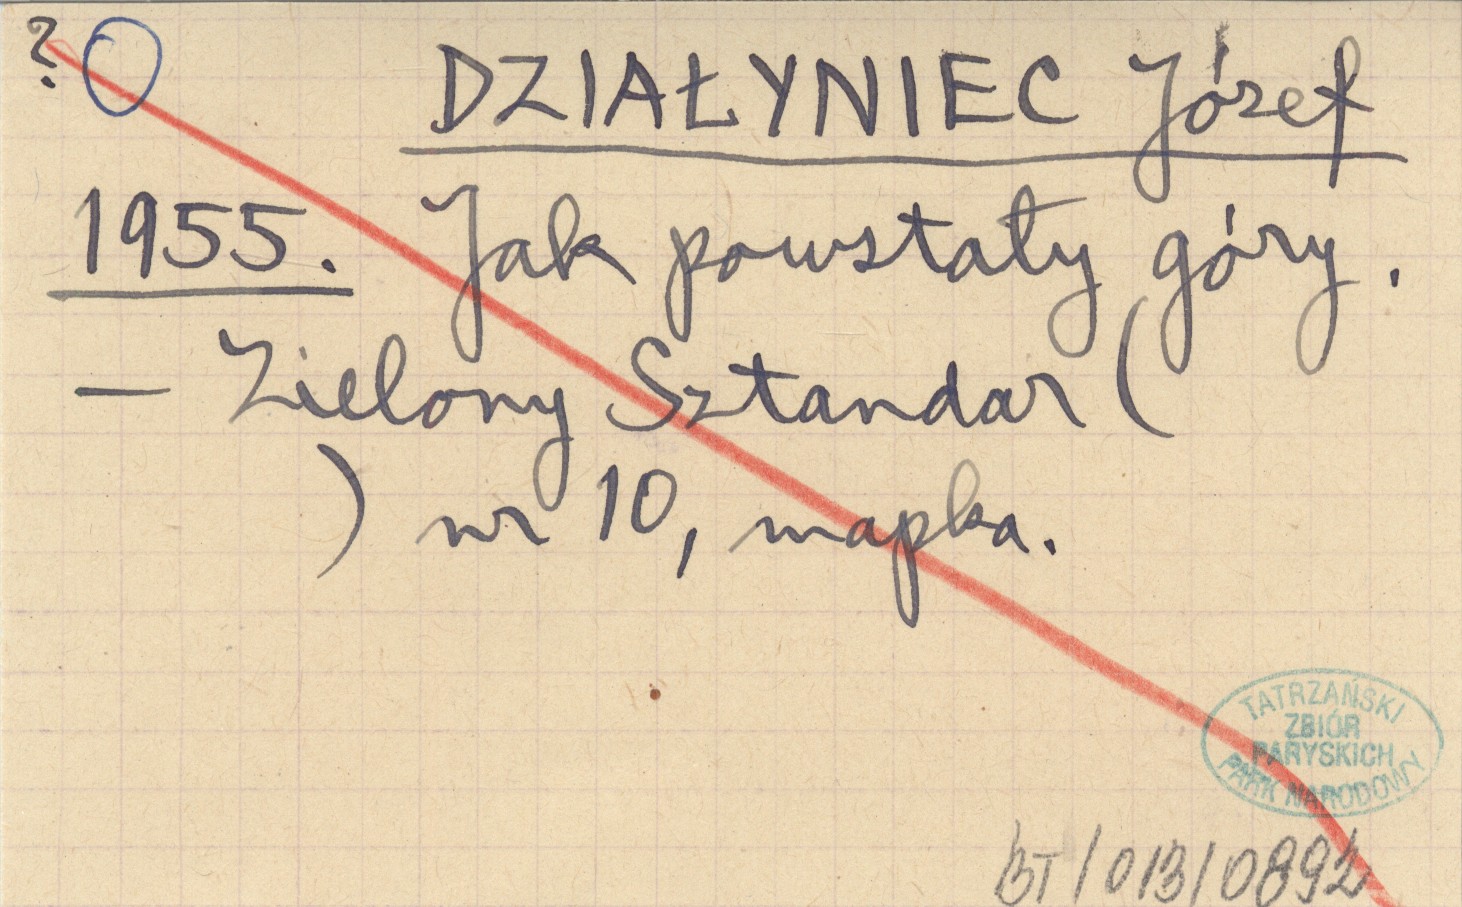 ?
DZIAŁYNIEC Józef
1955. Jak powstały góry.
— Zielony Sztandar (
) nr 10, mapka.
TATRZAŃSKI
ZBIÓR
PARYSKICH
PARK NARODOWY
BT/013/0892